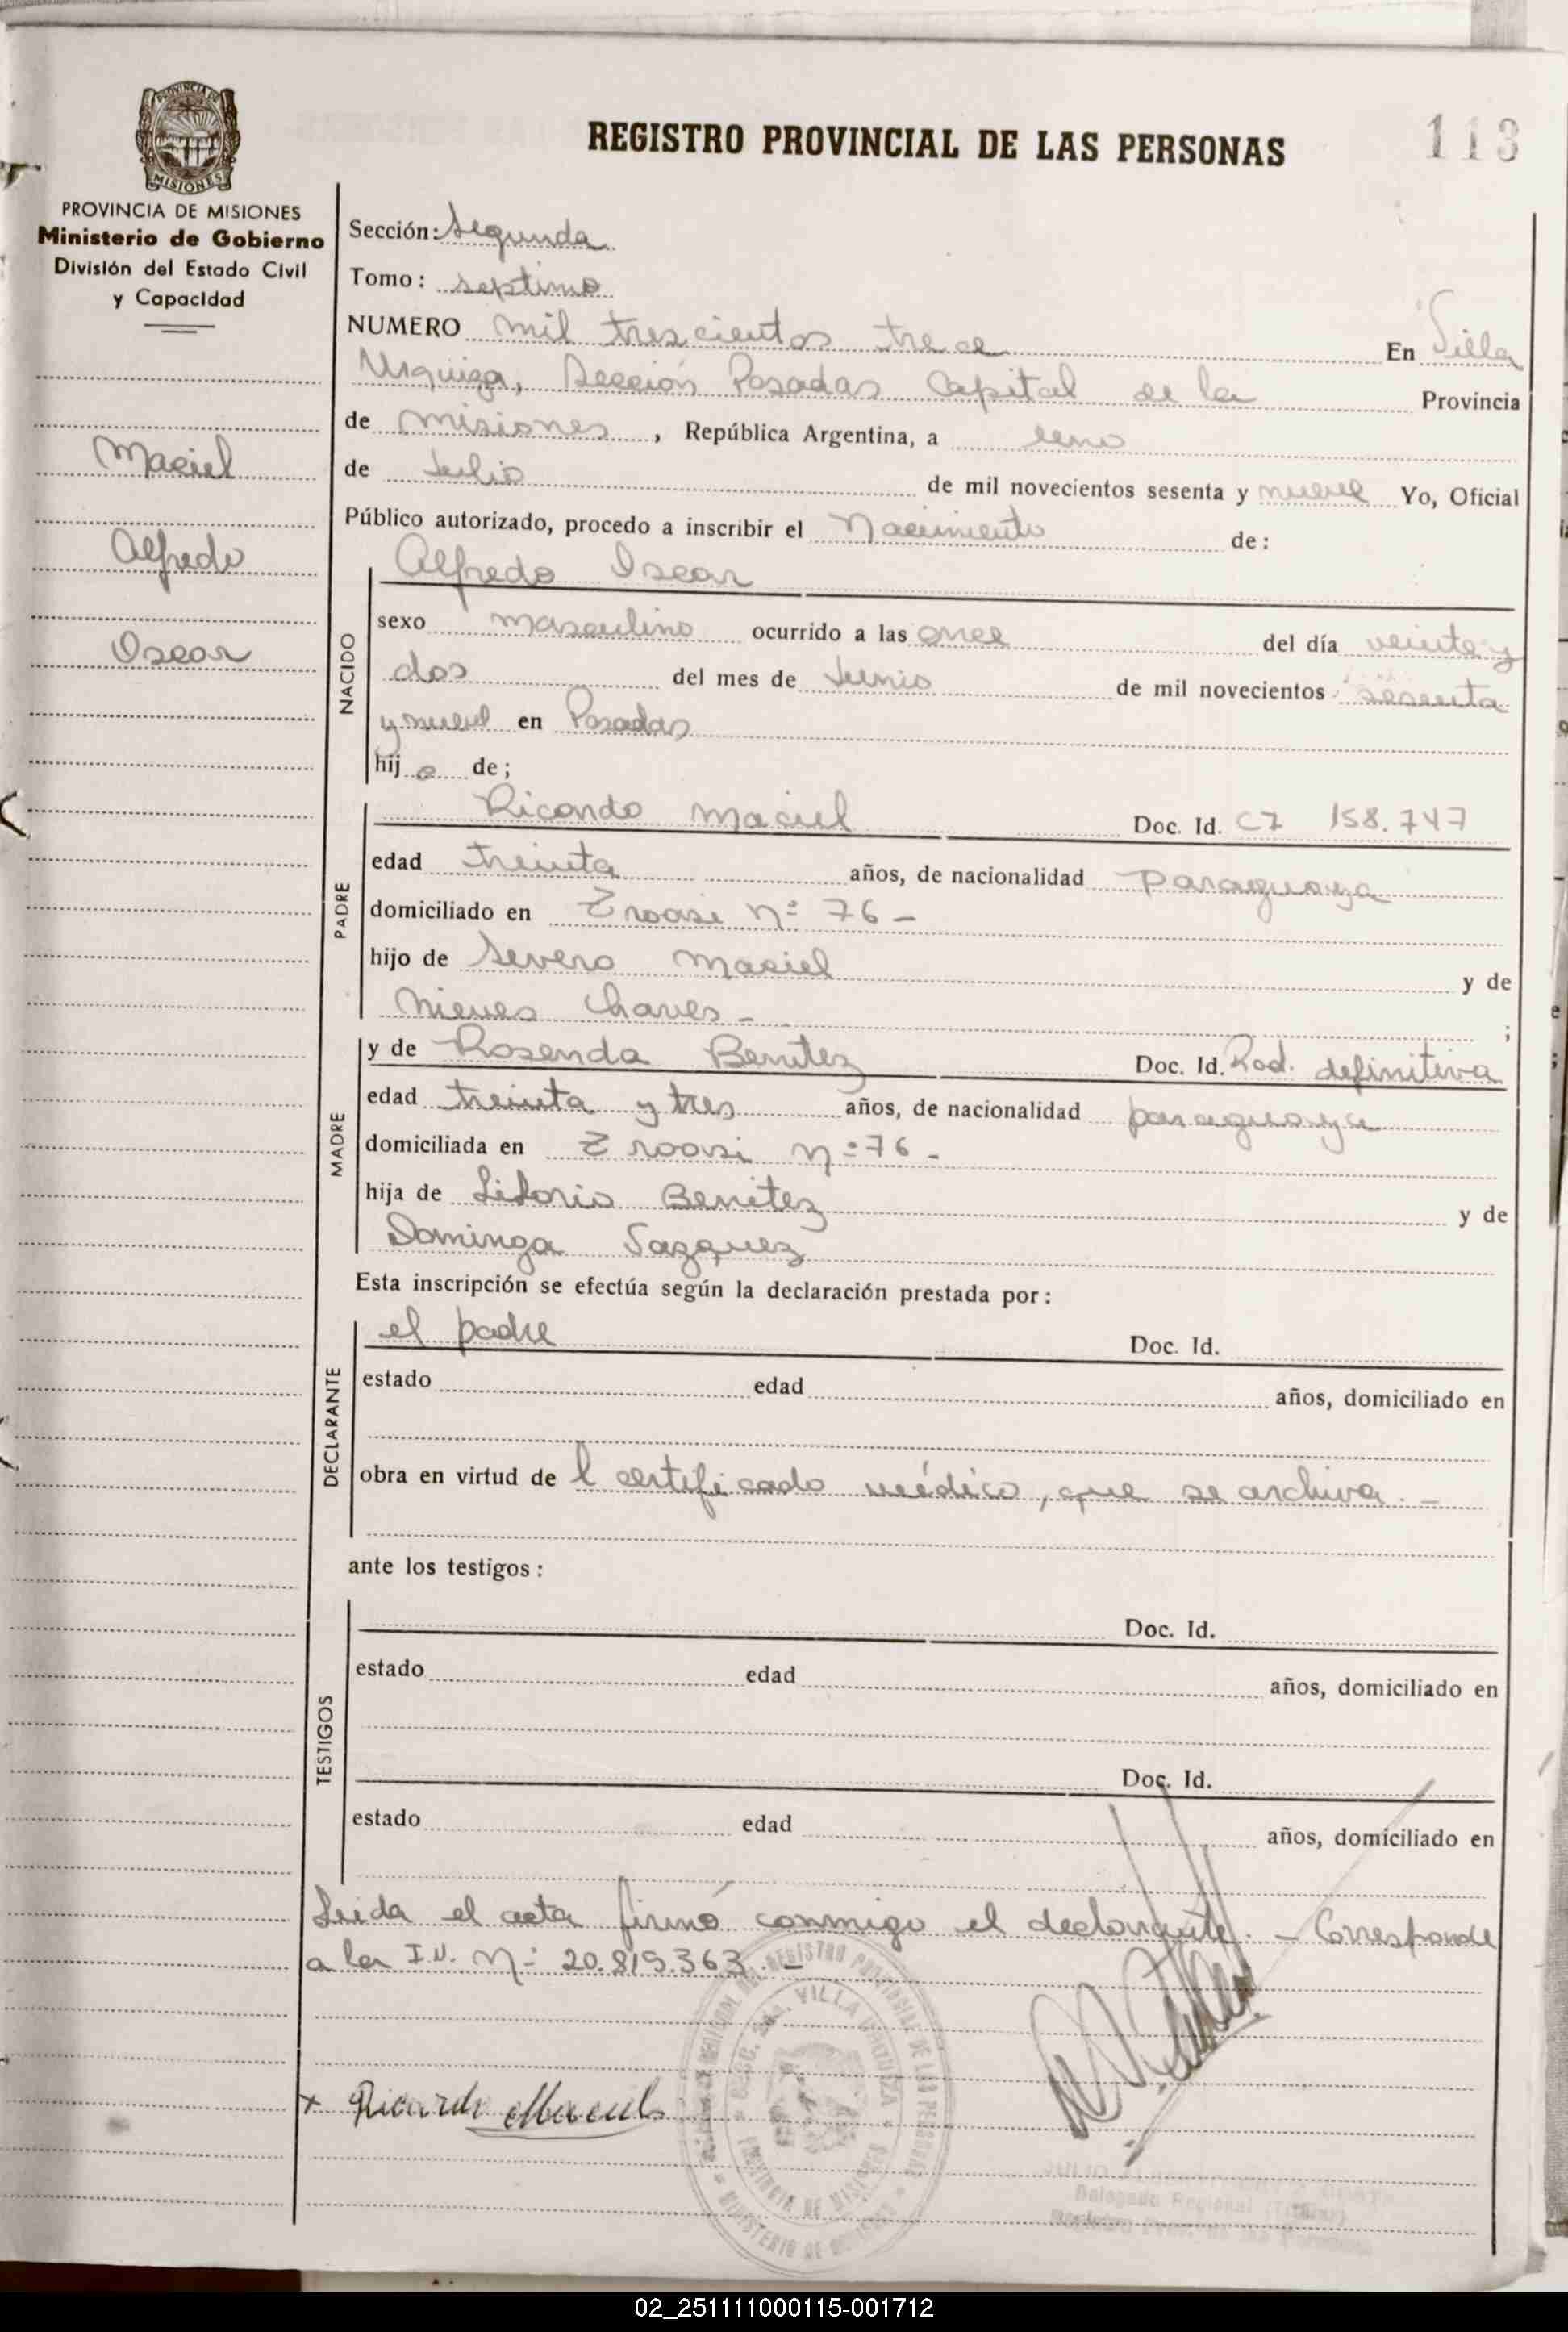 PROVINCIA DE MISIONES
REGISTRO PROVINCIAL DE LAS PERSONAS
113
PROVINCIA DE MISIONES
Ministerio de Gobierno
División del Estado Civil
y Capacidad
Maciel
Alfredo
Oscar
Sección: Segunda
Tomo: septimo
NUMERO mil trescientos trece En Villa
Urquiza, Sección Posadas Capital de la Provincia
de Misiones, República Argentina, a uno
de Julio de mil novecientos sesenta y nueve Yo, Oficial
Público autorizado, procedo a inscribir el Nacimiento de:
NACIDO
Alfredo Oscar
sexo masculino ocurrido a las once del día veinte y
dos del mes de Junio de mil novecientos sesenta
y nueve en Posadas
hijo de;
PADRE
Ricardo Maciel Doc. Id. C7 158.747
edad treinta años, de nacionalidad paraguaya
domiciliado en nº 76 -
hijo de Severo Maciel y de
Nieves Chaves - ;
MADRE
y de Rosenda Benitez Doc. Id. Rad. definitiva
edad treinta y tres años, de nacionalidad paraguaya
domiciliada en nº 76 -
hija de Benitez y de
Dominga Vazquez
Esta inscripción se efectúa según la declaración prestada por:
DECLARANTE
el padre Doc. Id.
estado edad años, domiciliado en
obra en virtud del certificado médico, que se archiva. -
ante los testigos:
TESTIGOS
Doc. Id.
estado edad años, domiciliado en
Doc. Id.
estado edad años, domiciliado en
Leida el acta firmó conmigo el declarante. - Corresponde
a la I.N. Nº 20.819.363. -
x Ricardo Maciel
REGISTRO PROVINCIAL DE LAS PERSONAS
VILLA URQUIZA
PROVINCIA DE MISIONES
MINISTERIO DE GOBIERNO
Delegado Regional (Titular)
02_251111000115-001712